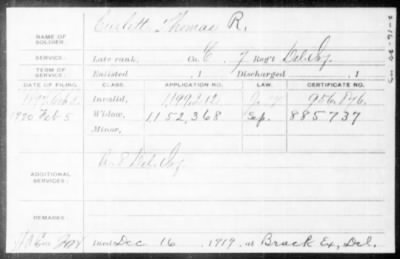 NAME OF SOLDIER: Thomas R.
SERVICE: Late rank, Co. C, 7 Reg't Del. Inf.
TERM OF SERVICE: Enlisted , 1 Discharged , 1
DATE OF FILING. CLASS. APPLICATION NO. LAW. CERTIFICATE NO.
Invalid,
1920 Feb 5 Widow, 1152,368 Sep. 885737
Minor,
ADDITIONAL SERVICES: Del. Inf
REMARKS:
Died Dec 16, 1919, at Brack Ex, Del.